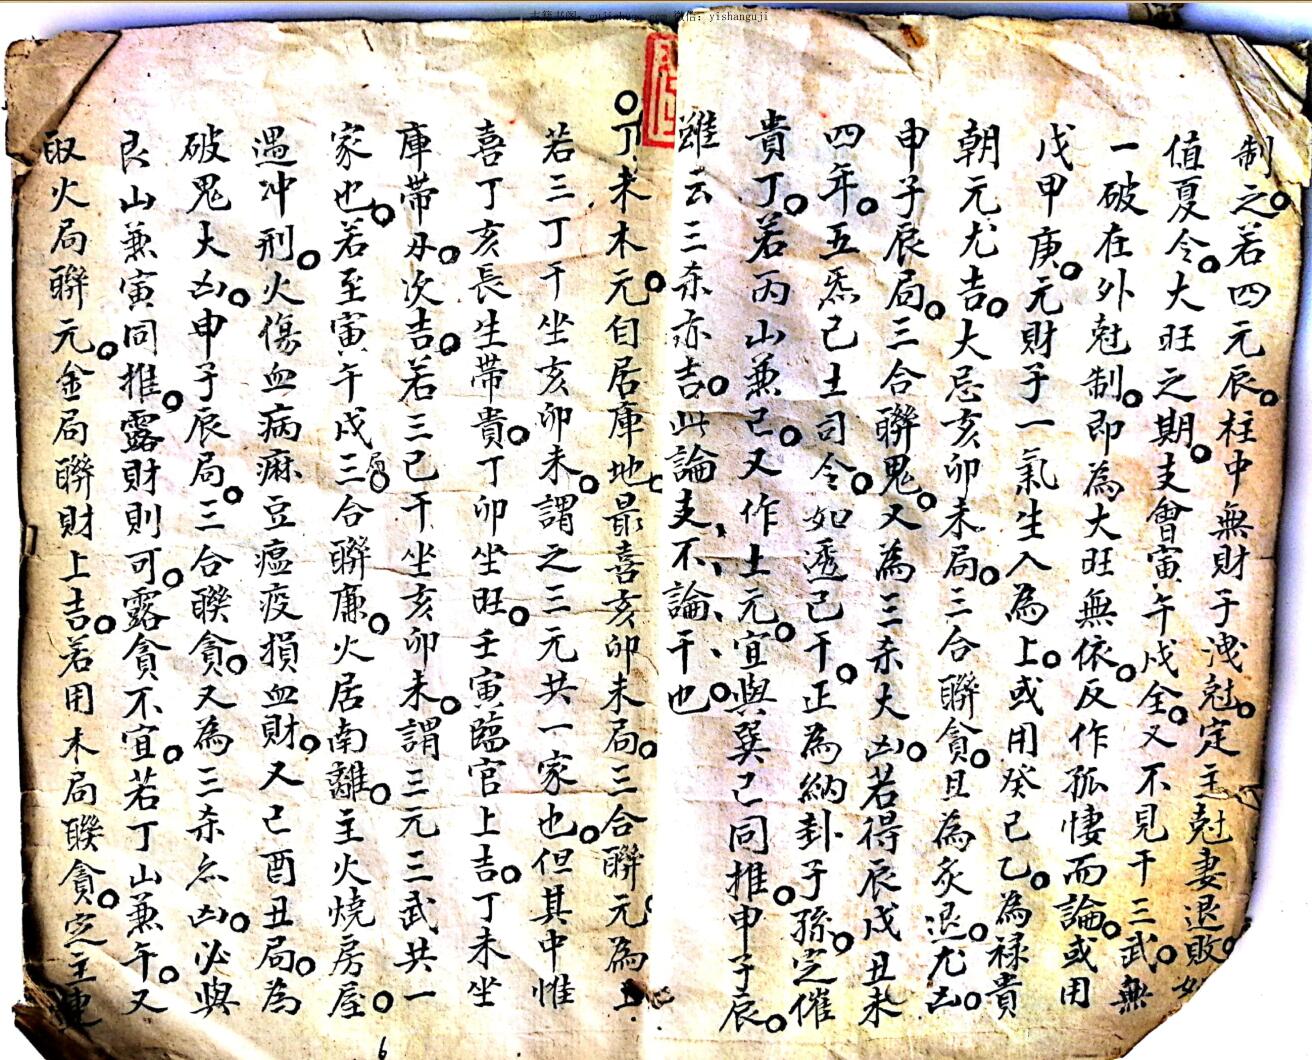 制之。若四元辰。柱中無財子洩尅。定主尅妻退敗。如
值夏令。大旺之期。支會寅午戌全。又不見干三武。無
一破在外尅制。即為大旺無依。反作孤悽而論。或用
戊甲庚。元財子一氣生入為上。或用癸己乙。為祿貴
朝元尤吉。大忌亥卯未局。三合聯貪。且為炙退。尤凶。
申子辰局。三合聯鬼。又為三杀大凶。若得辰戌丑未
四年。五炁己土司令。如透己干。正為納卦子孫。定催
貴丁。若丙山兼己。又作土元。宜與巽己同推。申子辰。
雖云三杀亦吉。此論支不論干也。
丁未木元。自居庫地。最喜亥卯未局。三合聯元為上。
若三丁干坐亥卯未。謂之三元共一家也。但其中惟
喜丁亥長生帶貴。丁卯坐旺。壬寅臨官上吉。丁未坐
庫帶刃。次吉。若三己干坐亥卯未。謂三元三武共一
家也。若至寅午戌三合局聯廉。火居南離。主火燒房屋。
遇冲刑。火傷血病痲豆瘟疫損血財。又己酉丑局。為
破鬼大凶。申子辰局。三合聯貪。又為三杀亦凶。必與
艮山兼寅同推。露財則可。露貪不宜。若丁山兼午。又
取火局聯元。金局聯財上吉。若用木局聯貪。定主連
6
古籍书阁：gujishuge.com 微信：yishanguji